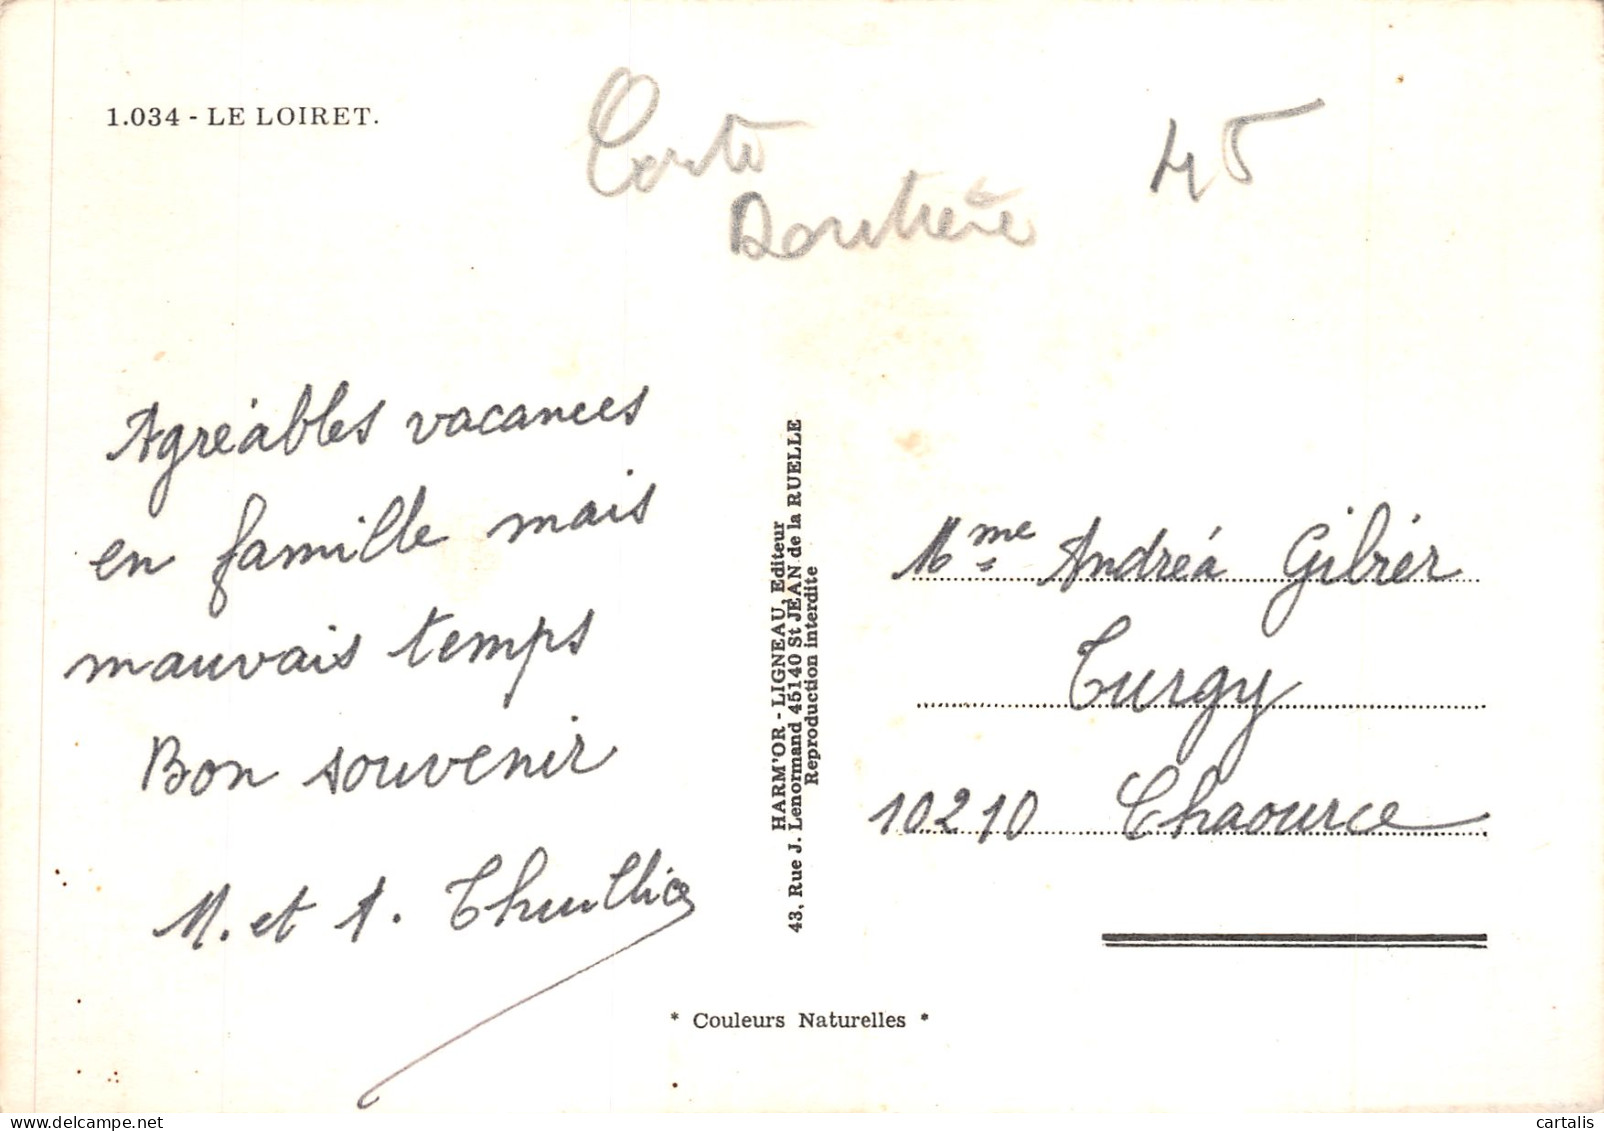 1.034 - LE LOIRET.
Carte
Routière
45
Agréables vacances
en famille mais
mauvais temps
Bon souvenir
M. et A. Thuillier
HARM'OR - LIGNEAU, Editeur
43, Rue J. Lenormand 45140 St JEAN de la RUELLE
Reproduction interdite
Mme Andréa Gibier
Turgy
10210 Chaource
* Couleurs Naturelles *
cartalis